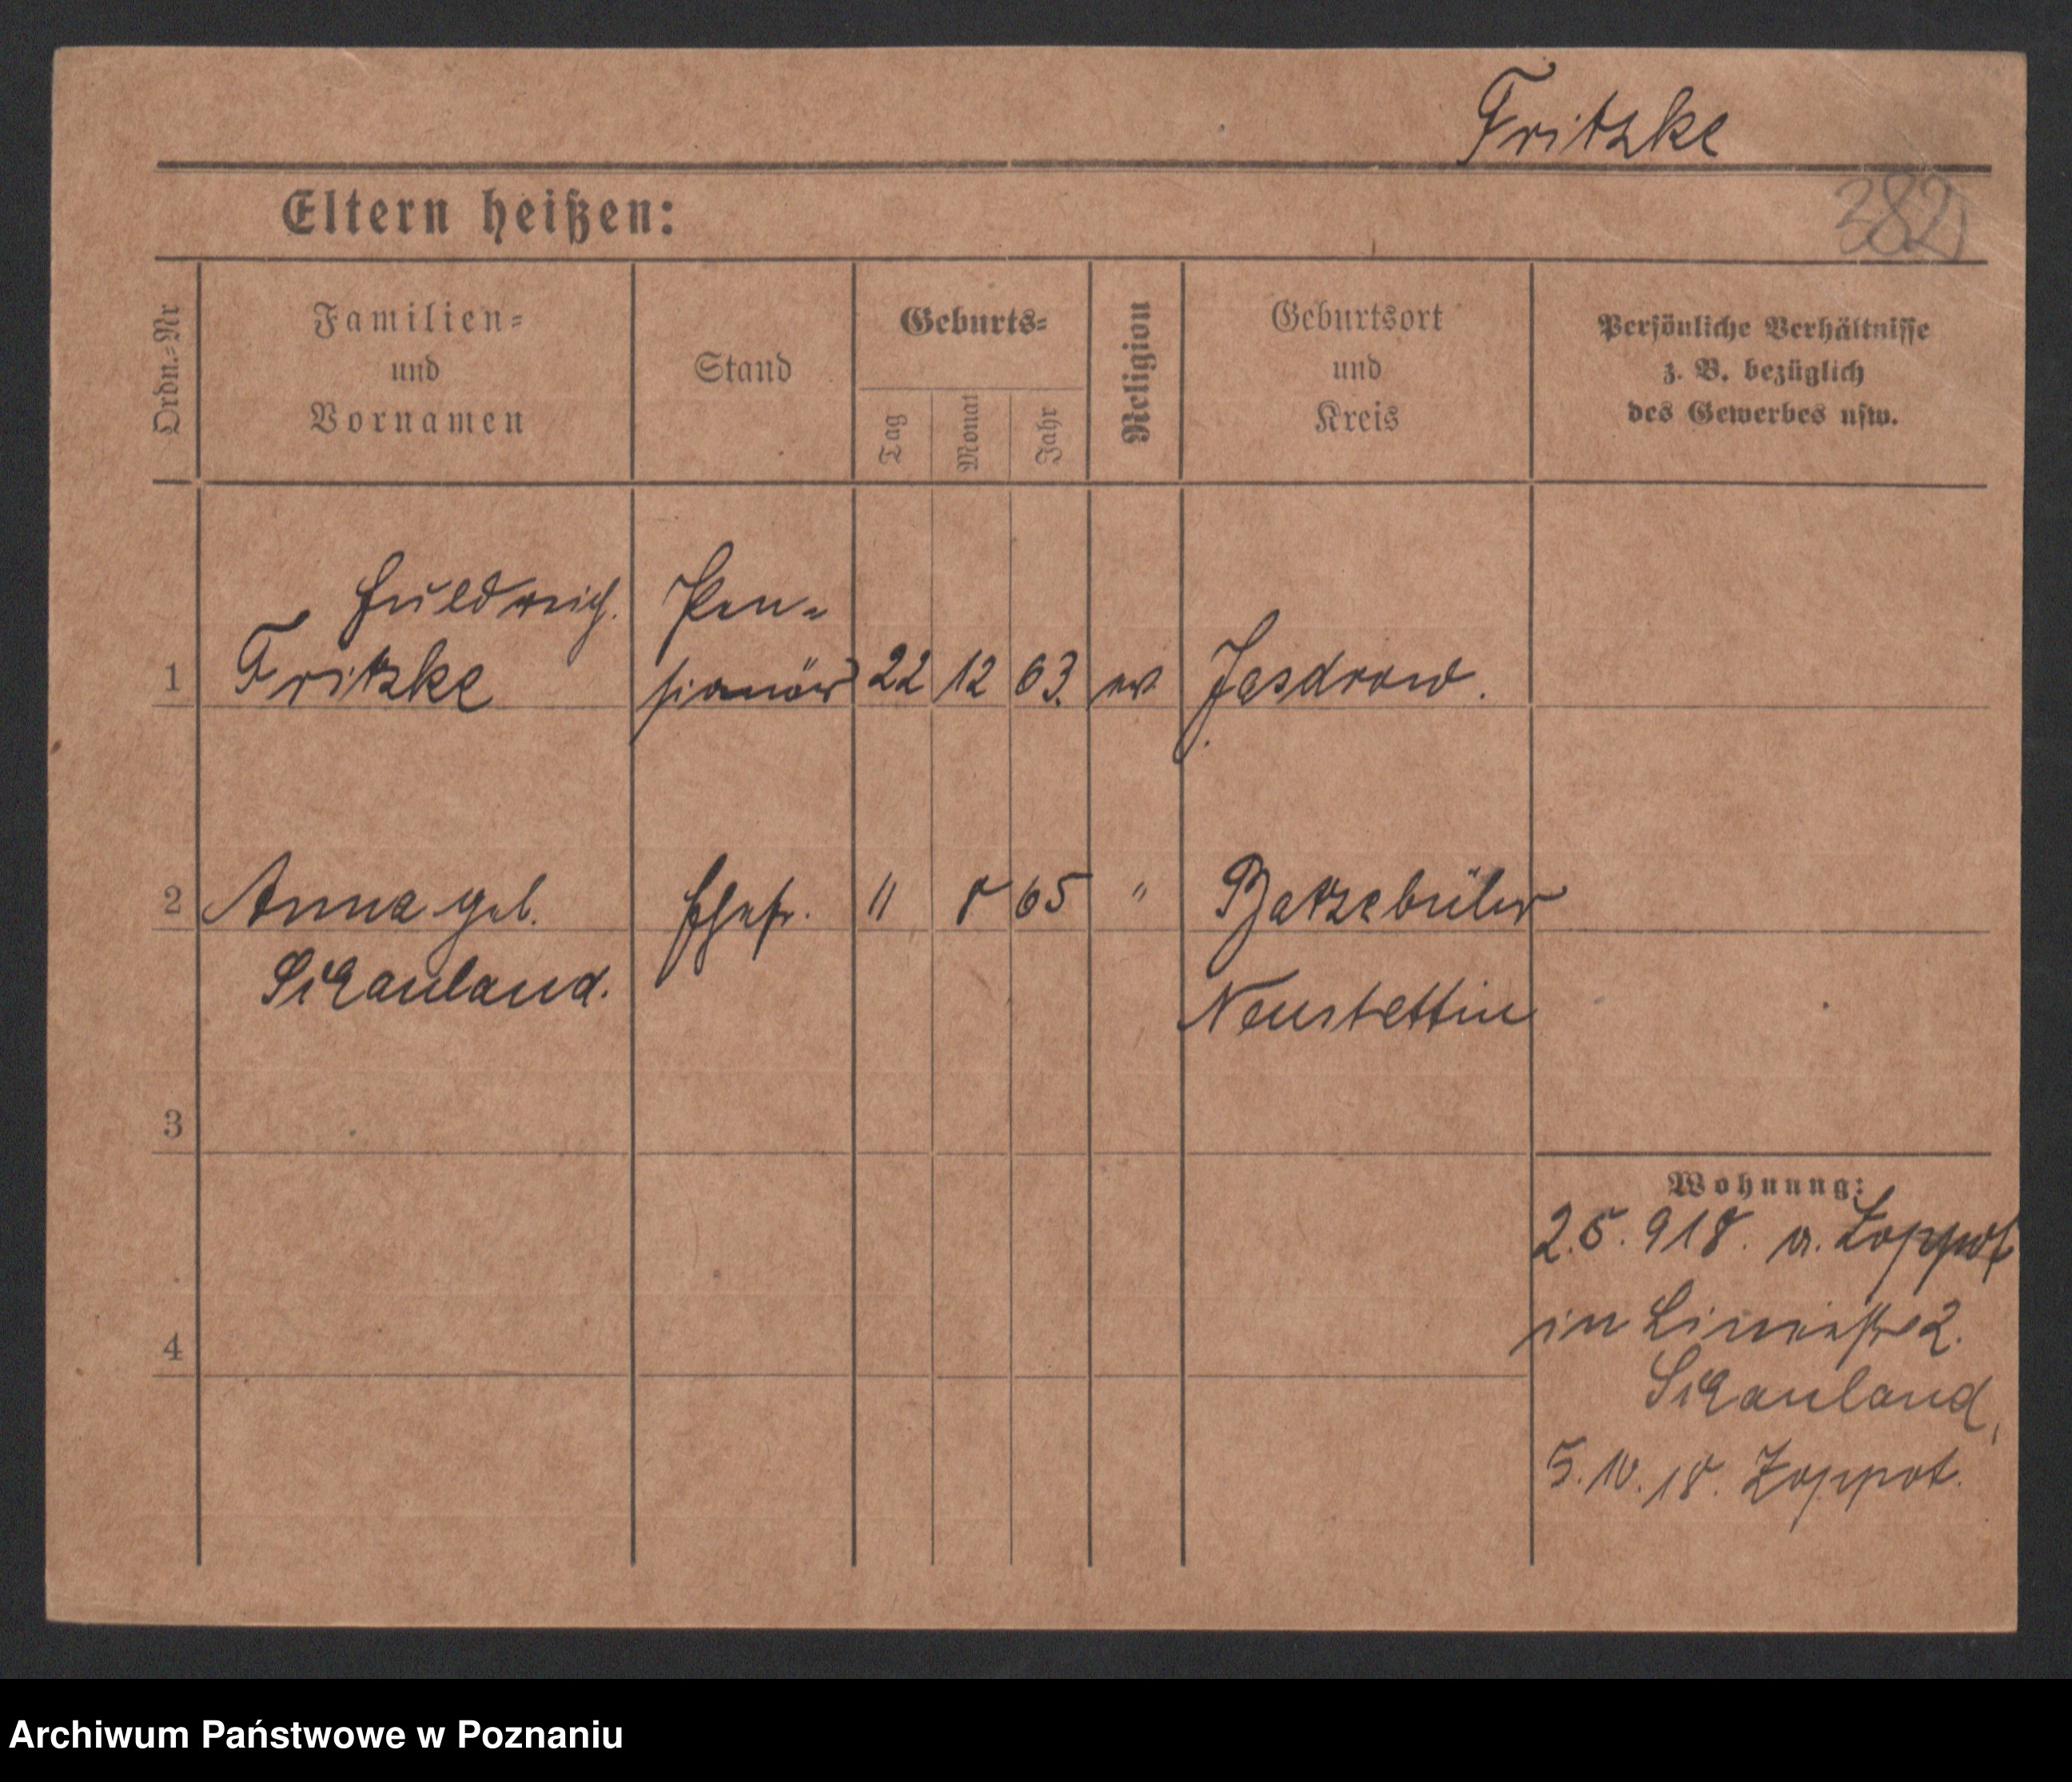 Fritzke
382
Eltern heißen:
Ordn.=Nr
Familien=
und
Vornamen
Stand
Geburts=
Tag
Monat
Jahr
Religion
Geburtsort
und
Kreis
Persönliche Verhältnisse
z. B. bezüglich
des Gewerbes usw.
Huldreich.
Pen=
1 Fritzke sionär 22 12 63. ev Jasdrow.
2 Anna geb. Ehefr. 11 8 65 " Ratzebuhr
Schauland.
Neustettin
3
Wohnung:
2.5.918. v. Zoppot
in
4
Schauland,
5.10.18. Zoppot.
Archiwum Państwowe w Poznaniu